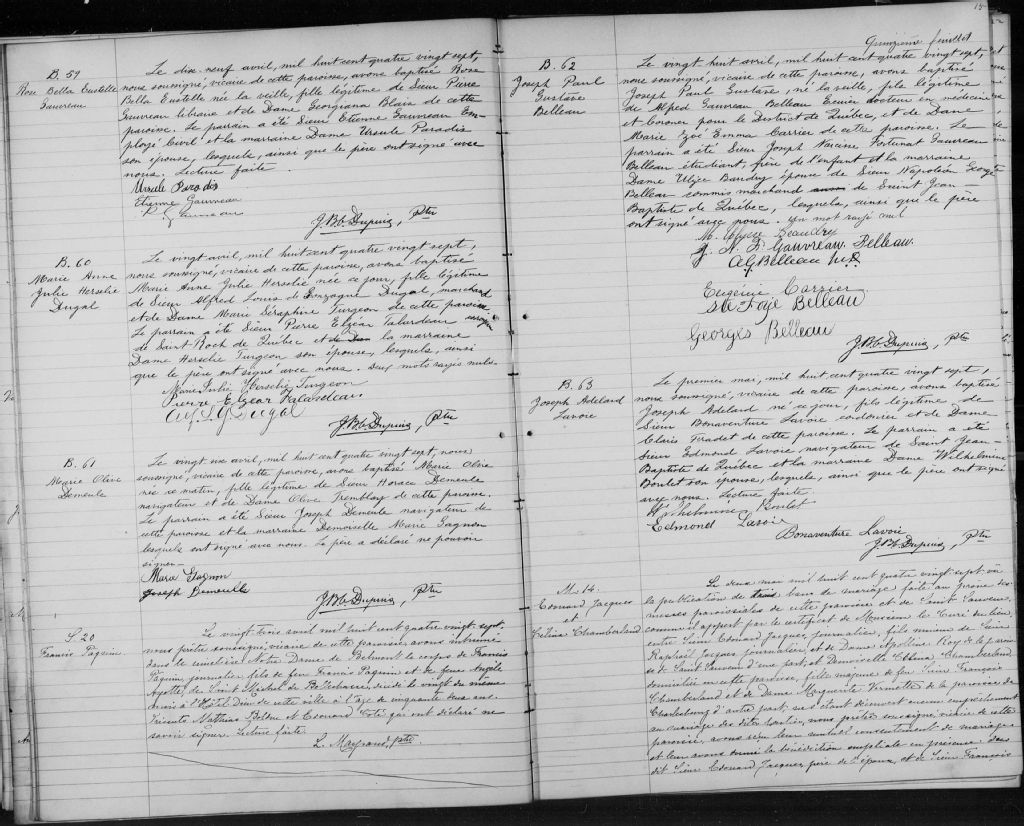 B. 59
Rose Bella Eustelle
Gauvreau
Le dix-neuf avril, mil huit cent quatre vingt sept,
nous soussigné, vicaire de cette paroisse, avons baptisé Rose
Bella Eustelle née la veille, fille légitime de Sieur Pierre
Gauvreau libraire et de Dame Georgiana Blais de cette
paroisse. Le parrain a été Sieur Etienne Gauvreau Em-
ployé Civil et la marraine Dame Ursule Paradis
son épouse, lesquels, ainsi que le père ont signé avec
nous. Lecture faite.
Ursule Paradis
Etienne Gauvreau
P. G. Gauvreau
J. Bte. Dupuis, Ptre
B. 60
Marie Anne
Julie Herselie
Dugal
Le vingt avril, mil huit cent quatre vingt sept,
nous soussigné, vicaire de cette paroisse, avons baptisé
Marie Anne Julie Herselie née ce jour, fille légitime
de Sieur Alfred Louis de Gonzague Dugal, marchand
et de Dame Marie Séraphine Turgeon de cette paroisse.
Le parrain a été Sieur Pierre Elzéar Falardeau
de Saint Roch de Québec et de Dam la marraine
Dame Herselie Turgeon son épouse, lesquels, ainsi
que le père ont signé avec nous. Deux mots rayés nuls.
Marie Julie Herselie Turgeon
Pierre Elzear Falardeau
J. Bte. Dupuis, Ptre
B. 61
Marie Olive
Demeule
Le vingt six avril, mil huit cent quatre vingt sept, nous
soussigné, vicaire de cette paroisse, avons baptisé Marie Olive
née ce matin, fille légitime de Sieur Horace Demeule
navigateur et de Dame Olive Tremblay de cette paroisse.
Le parrain a été Sieur Joseph Demeule navigateur de
cette paroisse et la marraine Demoiselle Marie Gagnon
lesquels ont signé avec nous. Le père a déclaré ne pouvoir
signer.
Marie Gagnon
Joseph Demeulle
J. Bte. Dupuis, Ptre
S. 20
Francis Paquin
Le vingt trois avril mil huit cent quatre vingt sept,
nous prêtre soussigné, vicaire de cette paroisse avons inhumé
dans le cimetière Notre Dame de Belmont le corps de Francis
Paquin, journalier, fils de feu Francis Paquin et de feue Angèle
Ayotte, de Saint Michel de Bellechasse, décédé le vingt du même
mois à l'Hôtel Dieu de cette ville à l'âge de cinquante deux ans.
Présents Mathias Bolduc et Edouard Coté qui ont déclaré ne
savoir signer. Lecture faite.
L. Mayrand, Ptre
15
Quinzième feuillet
B. 62
Joseph Paul
Gustave
Belleau
Le vingt huit avril, mil huit cent quatre vingt sept,
nous soussigné, vicaire de cette paroisse, avons baptisé
Joseph Paul Gustave, né la veille, fils légitime
de Alfred Gauvreau Belleau Ecuier docteur en médecine
et Coroner pour le District de Québec, et de Dame
Marie Zoé Emma Carrier de cette paroisse. Le
parrain a été Sieur Joseph Narcisse Fortunat Gauvreau
Belleau étudiant, frère de l'enfant et la marraine
Dame Ulyce Baudry épouse de Sieur Napoléon George
Belleau commis marchand de Saint Jean-
Baptiste de Québec, lesquels, ainsi que le père
ont signé avec nous. Un mot rayé nul
M. Ulysse Beaudry
J. N. F. Gauvreau Belleau.
A. G. Belleau M.D.
Eugénie Carrier
Ste Foye Belleau
Georges Belleau
J. Bte. Dupuis, Ptre
B. 63
Joseph Adelard
Lavoie
Le premier mai, mil huit cent quatre vingt sept,
nous soussigné, vicaire de cette paroisse, avons baptisé
Joseph Adelard né ce jour, fils légitime de
Sieur Bonaventure Lavoie cordonnier et de Dame
Claris Firadet de cette paroisse. Le parrain a été
Sieur Edmond Lavoie navigateur de Saint Jean-
Baptiste de Québec et la marraine Dame Wilhelmine
Boulet son épouse, lesquels, ainsi que le père ont signé
avec nous. Lecture faite.
Wilhelmine Boulet
Edmond Lavoie
Bonaventure Lavoie
J. Bte. Dupuis, Ptre
M. 14
Edouard Jacques
et
Célina Chamberland
Le deux mai mil huit cent quatre vingt sept vu
la publication de bans de mariage faite au prône des
messes paroissiales de cette paroisse et de Saint Sauveur,
comme il appert par le certificat de Monsieur le Curé du lieu,
entre Sieur Edouard Jacques, journalier, fils mineur de Sieur
Raphaël Jacques journalier, et de Dame Apolline Roy de la paroisse
de Saint Sauveur d'une part, et Demoiselle Célina Chamberland
domiciliée en cette paroisse, fille majeure de feu Sieur François
Chamberland et de Dame Marguerite Vermette de la paroisse de
Charlesbourg d'autre part; ne s'étant découvert aucun empêchement
au mariage des dites parties, nous, prêtre soussigné, vicaire de cette
paroisse, avons reçu leur mutuel consentement de mariage
et leur avons donné la bénédiction nuptiale en présence dudit
dit Sieur Edouard Jacques, père de l'époux, et de Sieur François